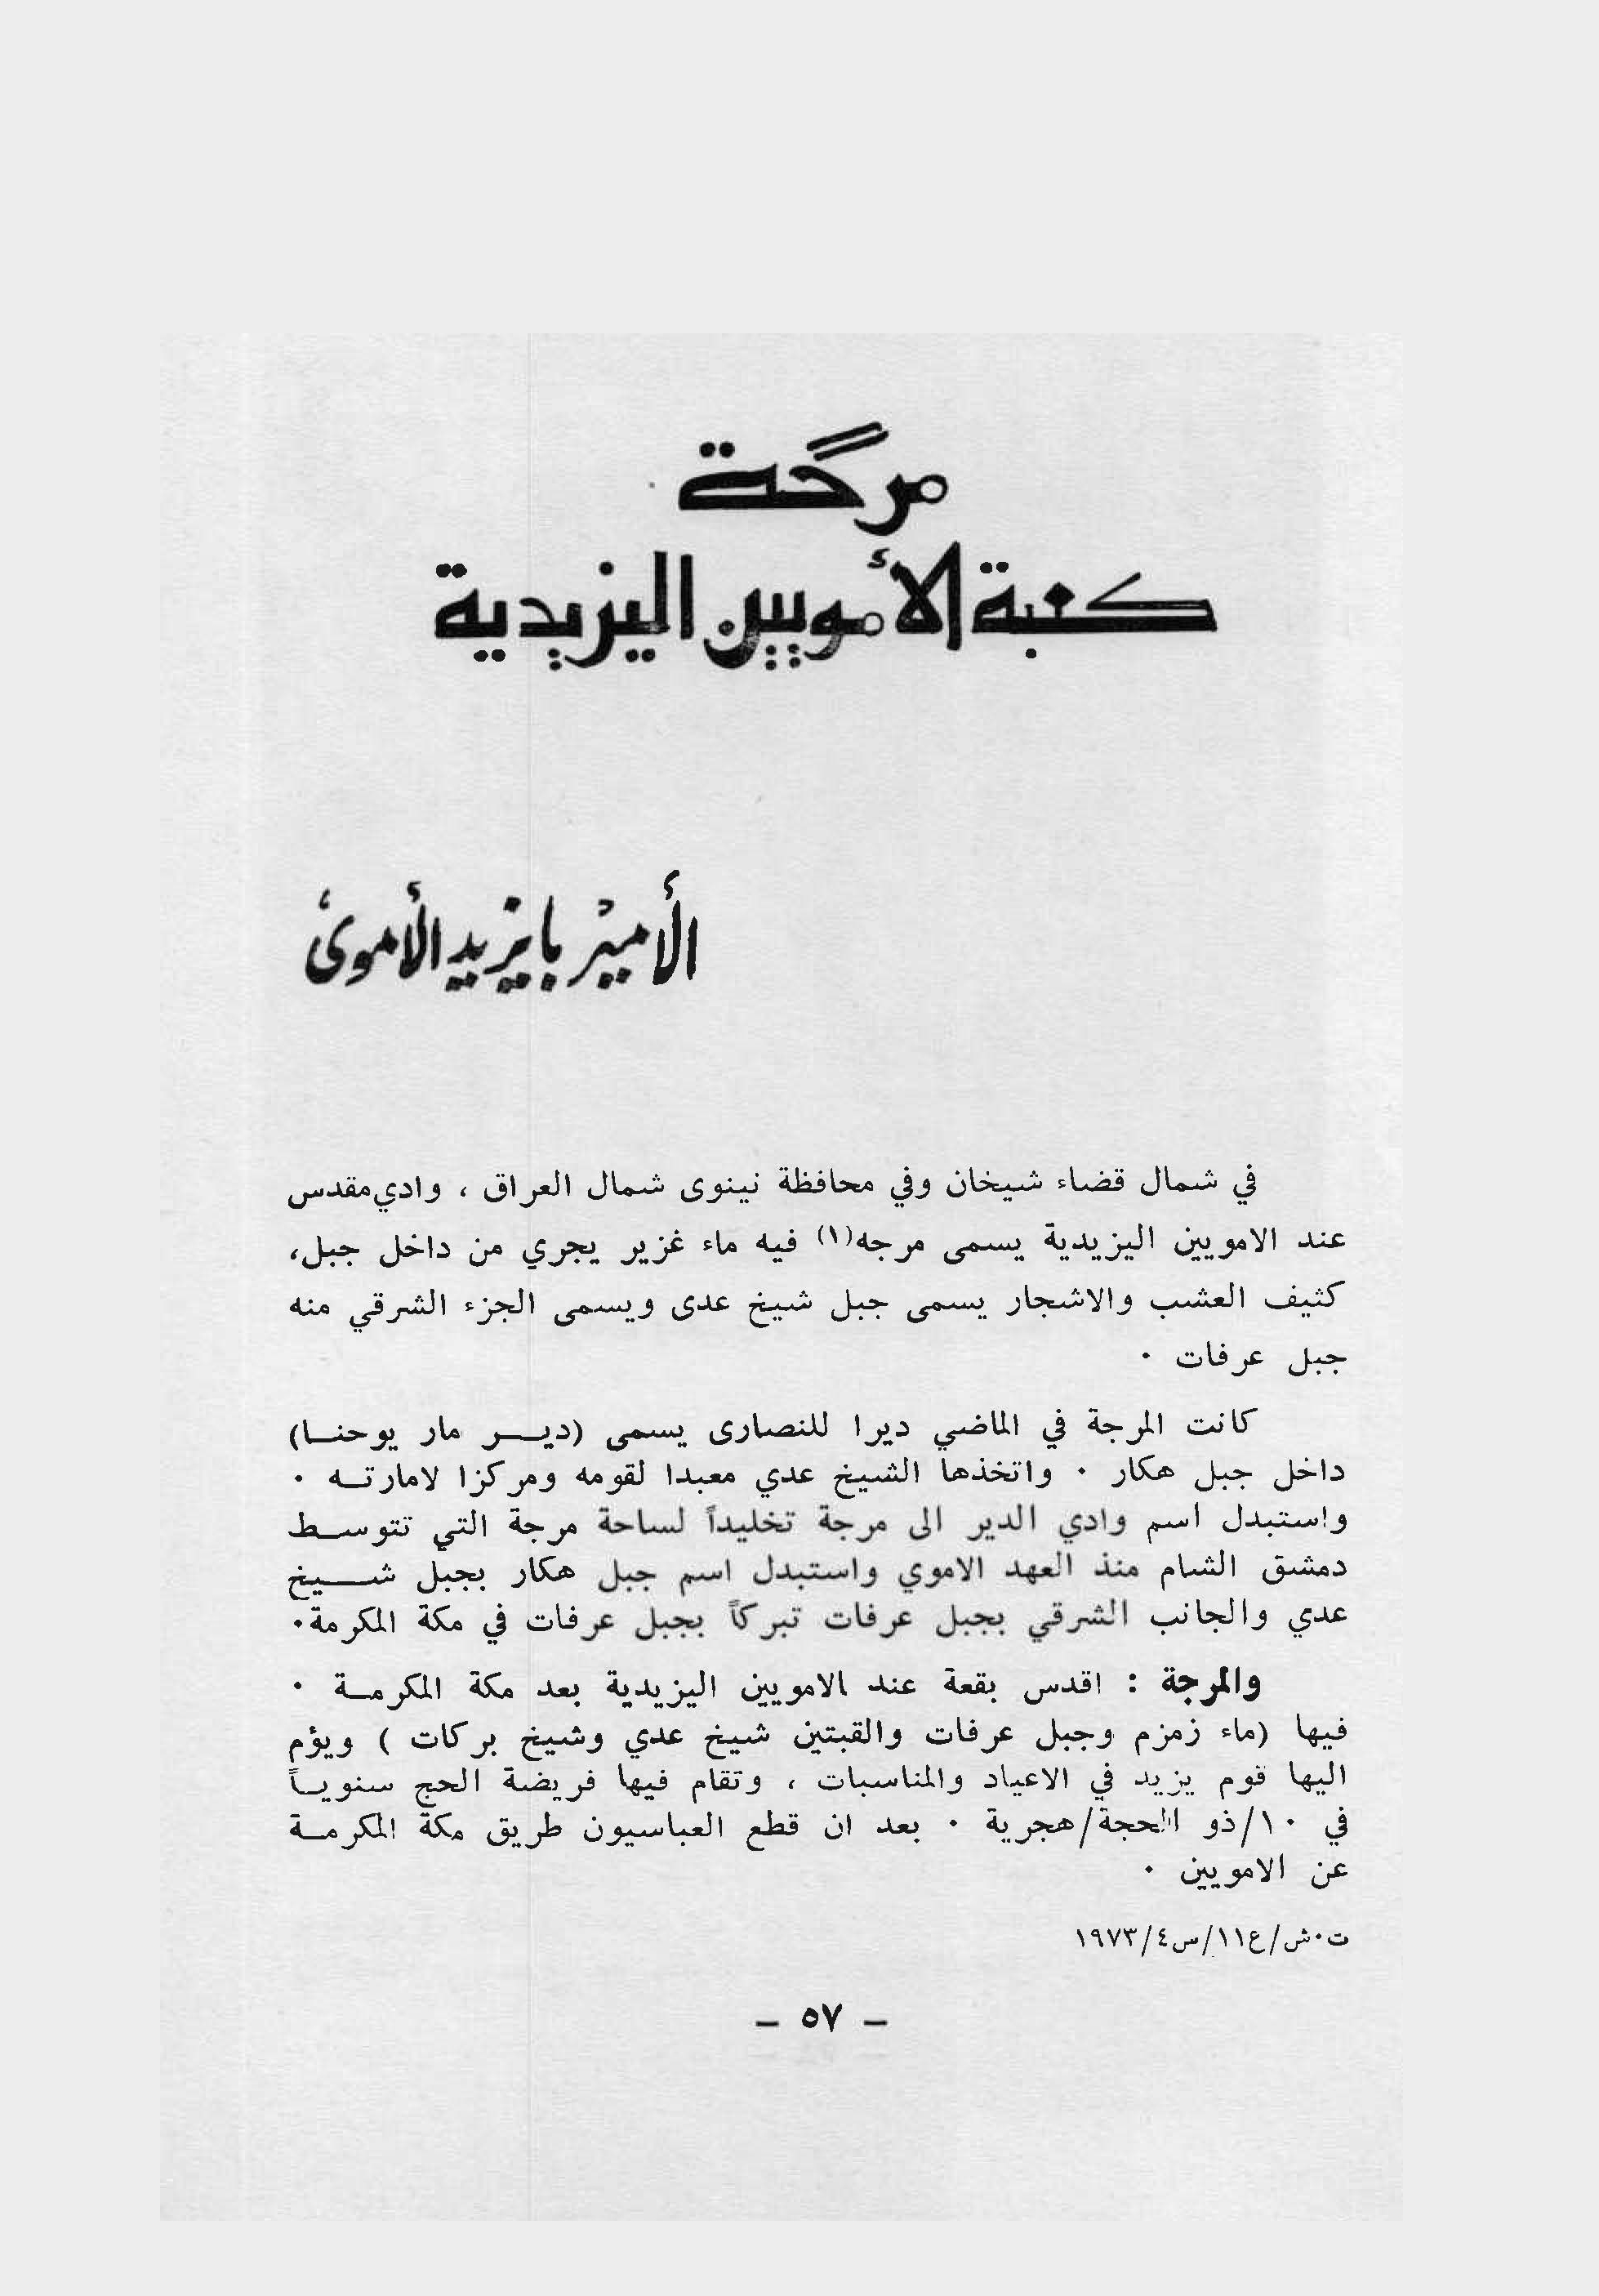 مرگة
كعبة الأمويين اليزيدية
الأمير بايزيد الأموي
في شمال قضاء شيخان وفي محافظة نينوى شمال العراق ، وادي مقدس
عند الامويين اليزيدية يسمى مرجه(١) فيه ماء غزير يجري من داخل جبل،
كثيف العشب والاشجار يسمى جبل شيخ عدى ويسمى الجزء الشرقي منه
جبل عرفات ٠
كانت المرجة في الماضي ديرا للنصارى يسمى (ديـــر مار يوحنــا)
داخل جبل هكار ٠ واتخذها الشيخ عدي معبدا لقومه ومركزا لامارتــه ٠
واستبدل اسم وادي الدير الى مرجة تخليداً لساحة مرجة التي تتوســط
دمشق الشام منذ العهد الاموي واستبدل اسم جبل هكار بجبل شـــيخ
عدي والجانب الشرقي بجبل عرفات تبركاً بجبل عرفات في مكة المكرمة٠
والمرجة : اقدس بقعة عند الامويين اليزيدية بعد مكة المكرمــة ٠
فيها (ماء زمزم وجبل عرفات والقبتين شيخ عدي وشيخ بركات ) ويؤم
اليها قوم يزيد في الاعياد والمناسبات ، وتقام فيها فريضة الحج سنويــاً
في ١٠/ذو الحجة/هجرية ٠ بعد ان قطع العباسيون طريق مكة المكرمــة
عن الامويين ٠
ت٠ش/ع١١/س٤/١٩٧٣
– ٥٧ –